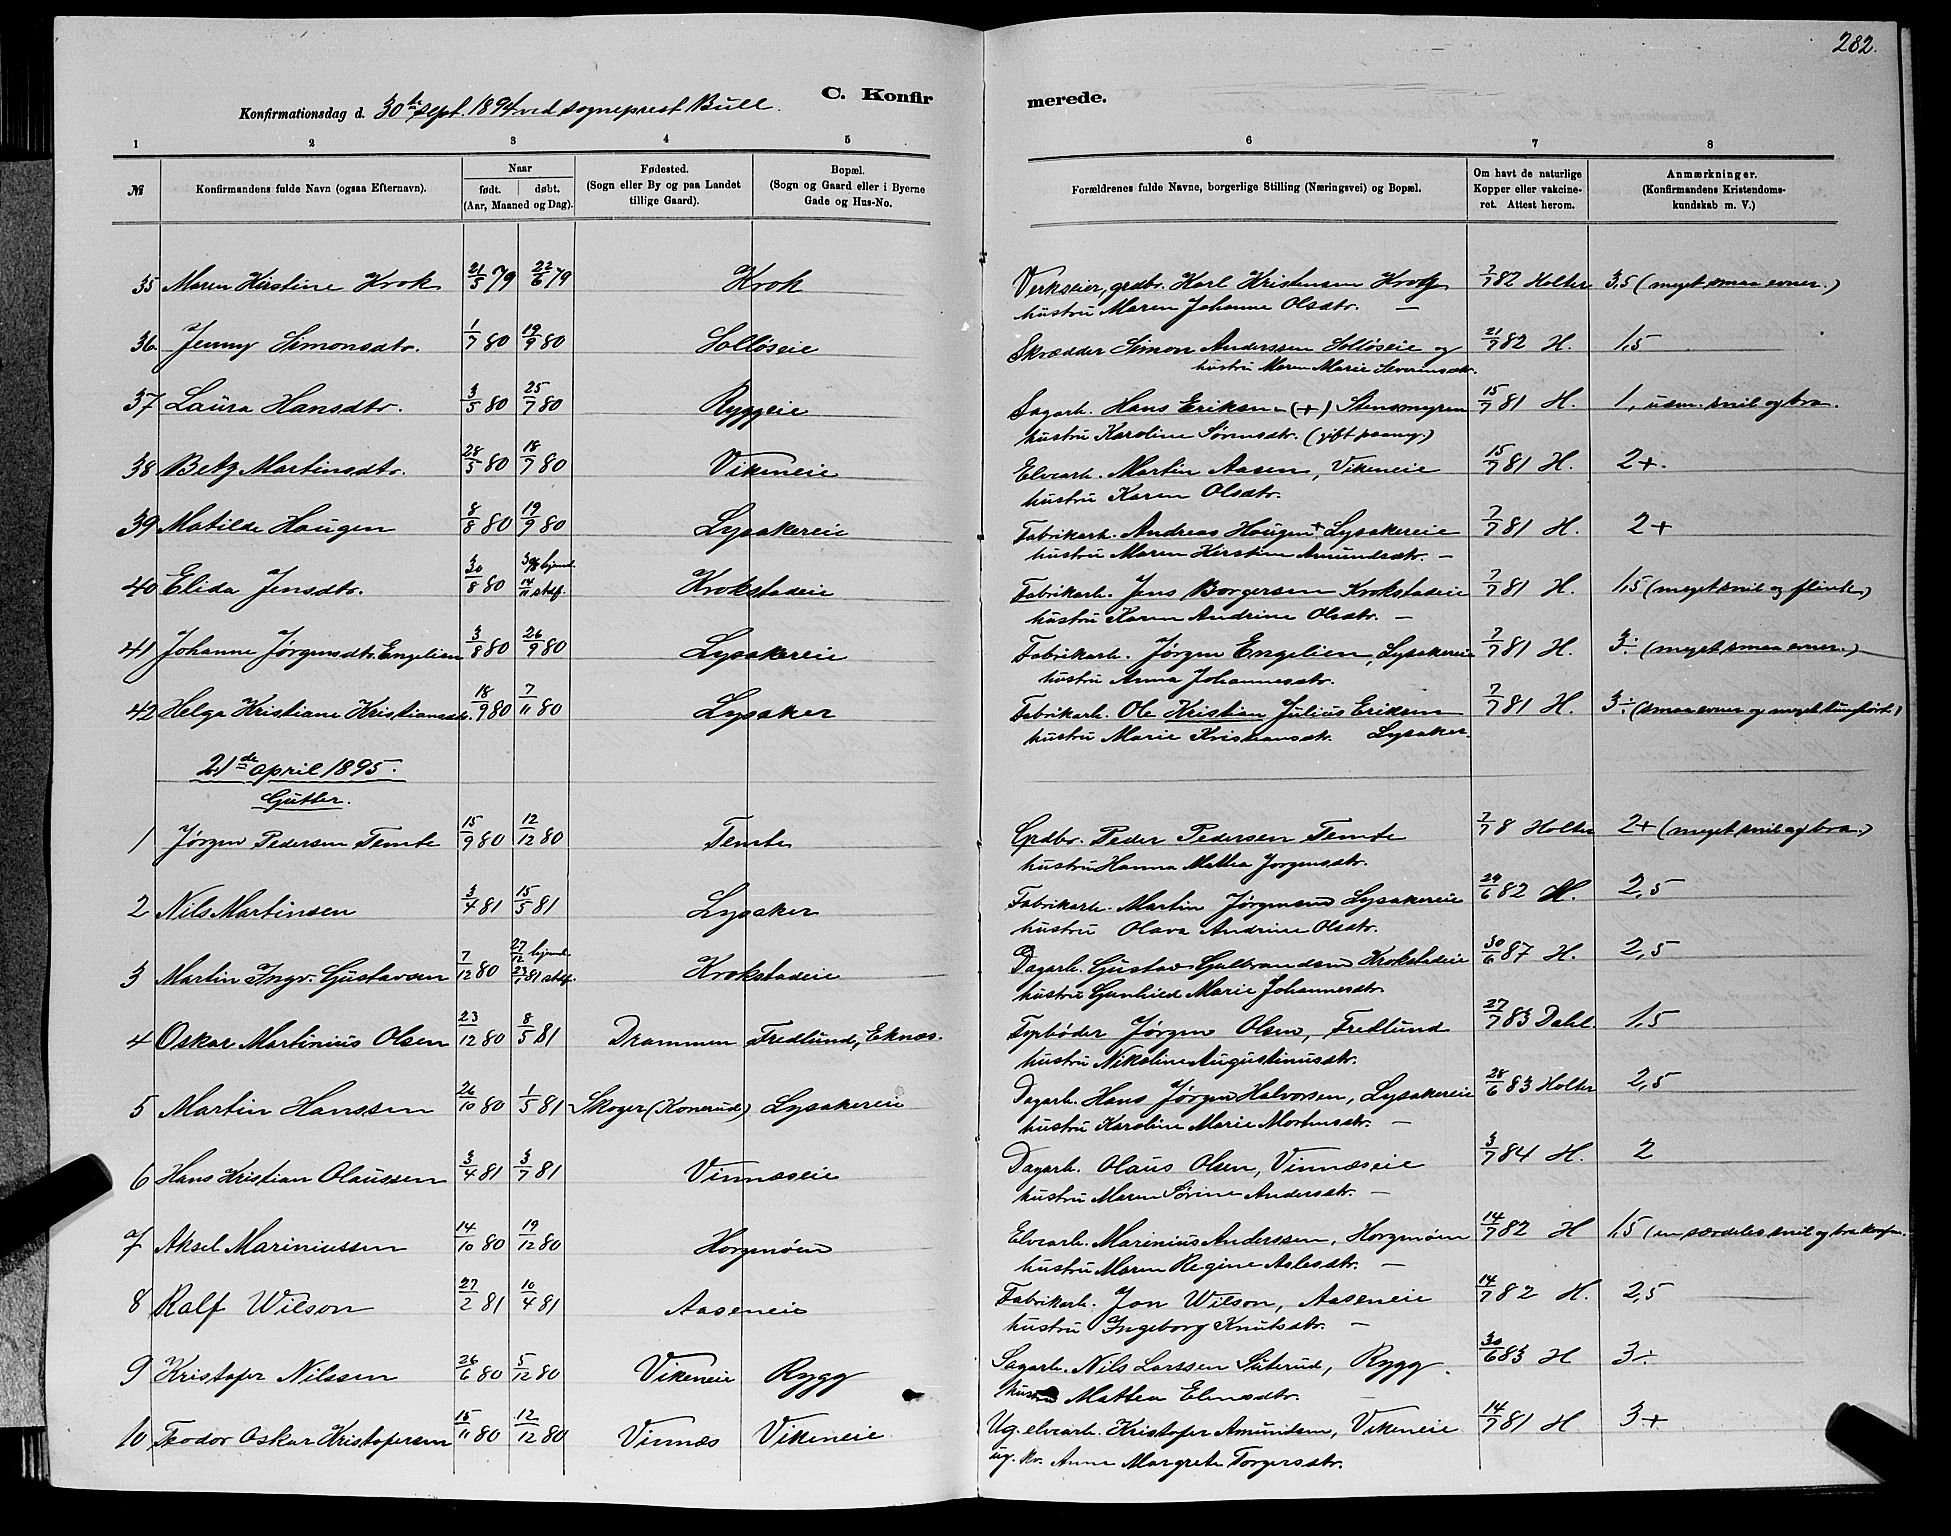 282.
C. Konfirmerede.
Konfirmationsdag d. 30te sept. 1894 ved sogneprest Bull.
1 2 3 4 5 6 7 8
№ Konfirmandens fulde Navn (ogsaa Efternavn). Naar født. døbt. (Aar, Maaned og Dag). Fødested. (Sogn eller By og paa Landet tillige Gaard). Bopæl. (Sogn og Gaard eller i Byerne Gade og Hus-No. Forældrenes fulde Navne, borgerlige Stilling (Næringsvei) og Bopæl. Om havt de naturlige Kopper eller vakcineret. Attest herom. Anmærkninger. (Konfirmandens Kristendomskundskab m. V.)
35 Maren Kirstine Krok 21/5 79 22/6 79 Krok Verkseier, grdbr. Karl Kristensen Krok 7/7 82 Holter 3,5 (meget smaa evner.)
hustru Maren Johanne Olsdtr. —
36 Jenny Simonsdtr. 1/7 80 19/9 80 Solløseie Skrædder Simon Anderssen Solløseie og 21/7 82 H. 1,5
hustru Maren Marie Severinsdtr.
37 Laura Hansdtr. 3/5 80 25/7 80 Ryggeie Sagarb. Hans Eriksen (+) Stensmyren 15/7 81 H. 1, usm. snil og bra.
hustru Karoline Sørensdtr. (gift paany.)
38 Betzy Martinsdtr. 28/5 80 18/7 80 Vikeneie Elvearb. Martin Aasen, Vikeneie 15/7 81 H. 2+.
hustru Karen Olsdtr.
39 Matilde Haugen 8/8 80 19/9 80 Lysakereie Fabrikarb. Andreas Haugen + Lysakereie 7/7 81 H. 2+
hustru Maren Kirstine Amundsdtr. —
40 Elida Jensdtr. 30/8 80 hjemd. 14/11 stdf. Krokstadeie Fabrikarb. Jens Borgersen Krokstadeie 7/7 81 H. 1,5 (meget snil og flink)
hustru Karen Andrine Olsdtr. —
41 Johanne Jørgensdtr. Engelien 3/8 80 26/9 80 Lysakereie Fabrikarb. Jørgen Engelien, Lysakereie 7/7 81 H. 3÷ (meget smaa evner.)
hustru Anna Johannesdtr.
42 Helga Kristiane Kristiansdtr. 18/9 80 7/11 80 Lysaker Fabrikarb. Ole Kristian Julius Eriksen 7/7 81 H. 3÷ (smaa evner og meget tunghørt)
hustru Marie Kristiansdtr. Lysaker.
21de april 1895.
Gutter.
1 Jørgen Pedersen Temte 15/9 80 12/12 80 Temte Grdbr. Peder Pedersen Temte 7/7 8 Holter 2+ (meget snil og bra.)
hustru Hanna Mathea Jørgensdtr.
2 Nils Martinsen 3/4 81 15/5 81 Lysaker Fabrikarb. Martin Jørgensen Lysakereie 29/6 82 H. 2,5
hustru Olava Andrine Olsdtr.
3 Martin Ingv. Gustavsen 7/12 80 27/12 hjemd. 23/7 81 stdf. Krokstadeie Dagarb. Gustav Gulbrandsen Krokstadeie 30/6 87 H. 2,5
hustru Gunhild Marie Johannesdtr.
4 Oskar Martinius Olsen 23/12 80 8/5 81 Drammen Fredlund, Eknes. Fyrbøder Jørgen Olsen, Fredlund 27/7 83 Dahl 1,5
hustru Nikoline Augustinusdtr.
5 Martin Hanssen 26/10 80 1/5 81 Skoger (Konerud) Lysakereie Dagarb. Hans Jørgen Halvorsen, Lysakereie 28/6 83 Holter 2,5
hustru Karoline Marie Mortensdtr. —
6 Hans Kristian Olaussen 3/4 81 3/7 81 Vinnæseie Dagarb. Olaus Olsen, Vinnæseie 3/7 84 H. 2
hustru Maren Sørine Andersdtr. —
7 Aksel Mariniussen 14/10 80 19/12 80 Horgmoen Elvearb. Marinius Anderssen, Horgmoen 14/7 82 H 1,5 (en særdeles snil og bra konfm.
hustru Maren Regine Aslesdtr. —
8 Ralf Wilson 27/2 81 10/4 81 Aaseneie Fabrikarb. Jon Wilson, Aaseneie 14/7 82 H. 2,5
hustru Ingeborg Knutsdtr. —
9 Kristofer Nilssen 26/6 80 5/12 80 Vikeneie Rygg Sagarb. Nils Larssen Süterud, Rygg. 30/6 83 H 3÷
hustru Mathea Elensdtr.
10 Teodor Oskar Kristofersen 15/11 80 12/12 80 Vinnæs Vikeneie Ug. elvearb. Kristofer Amundsen, Vikeneie 14/7 81 H 3+
ug. kv. Anne Margrete Torgersdtr.